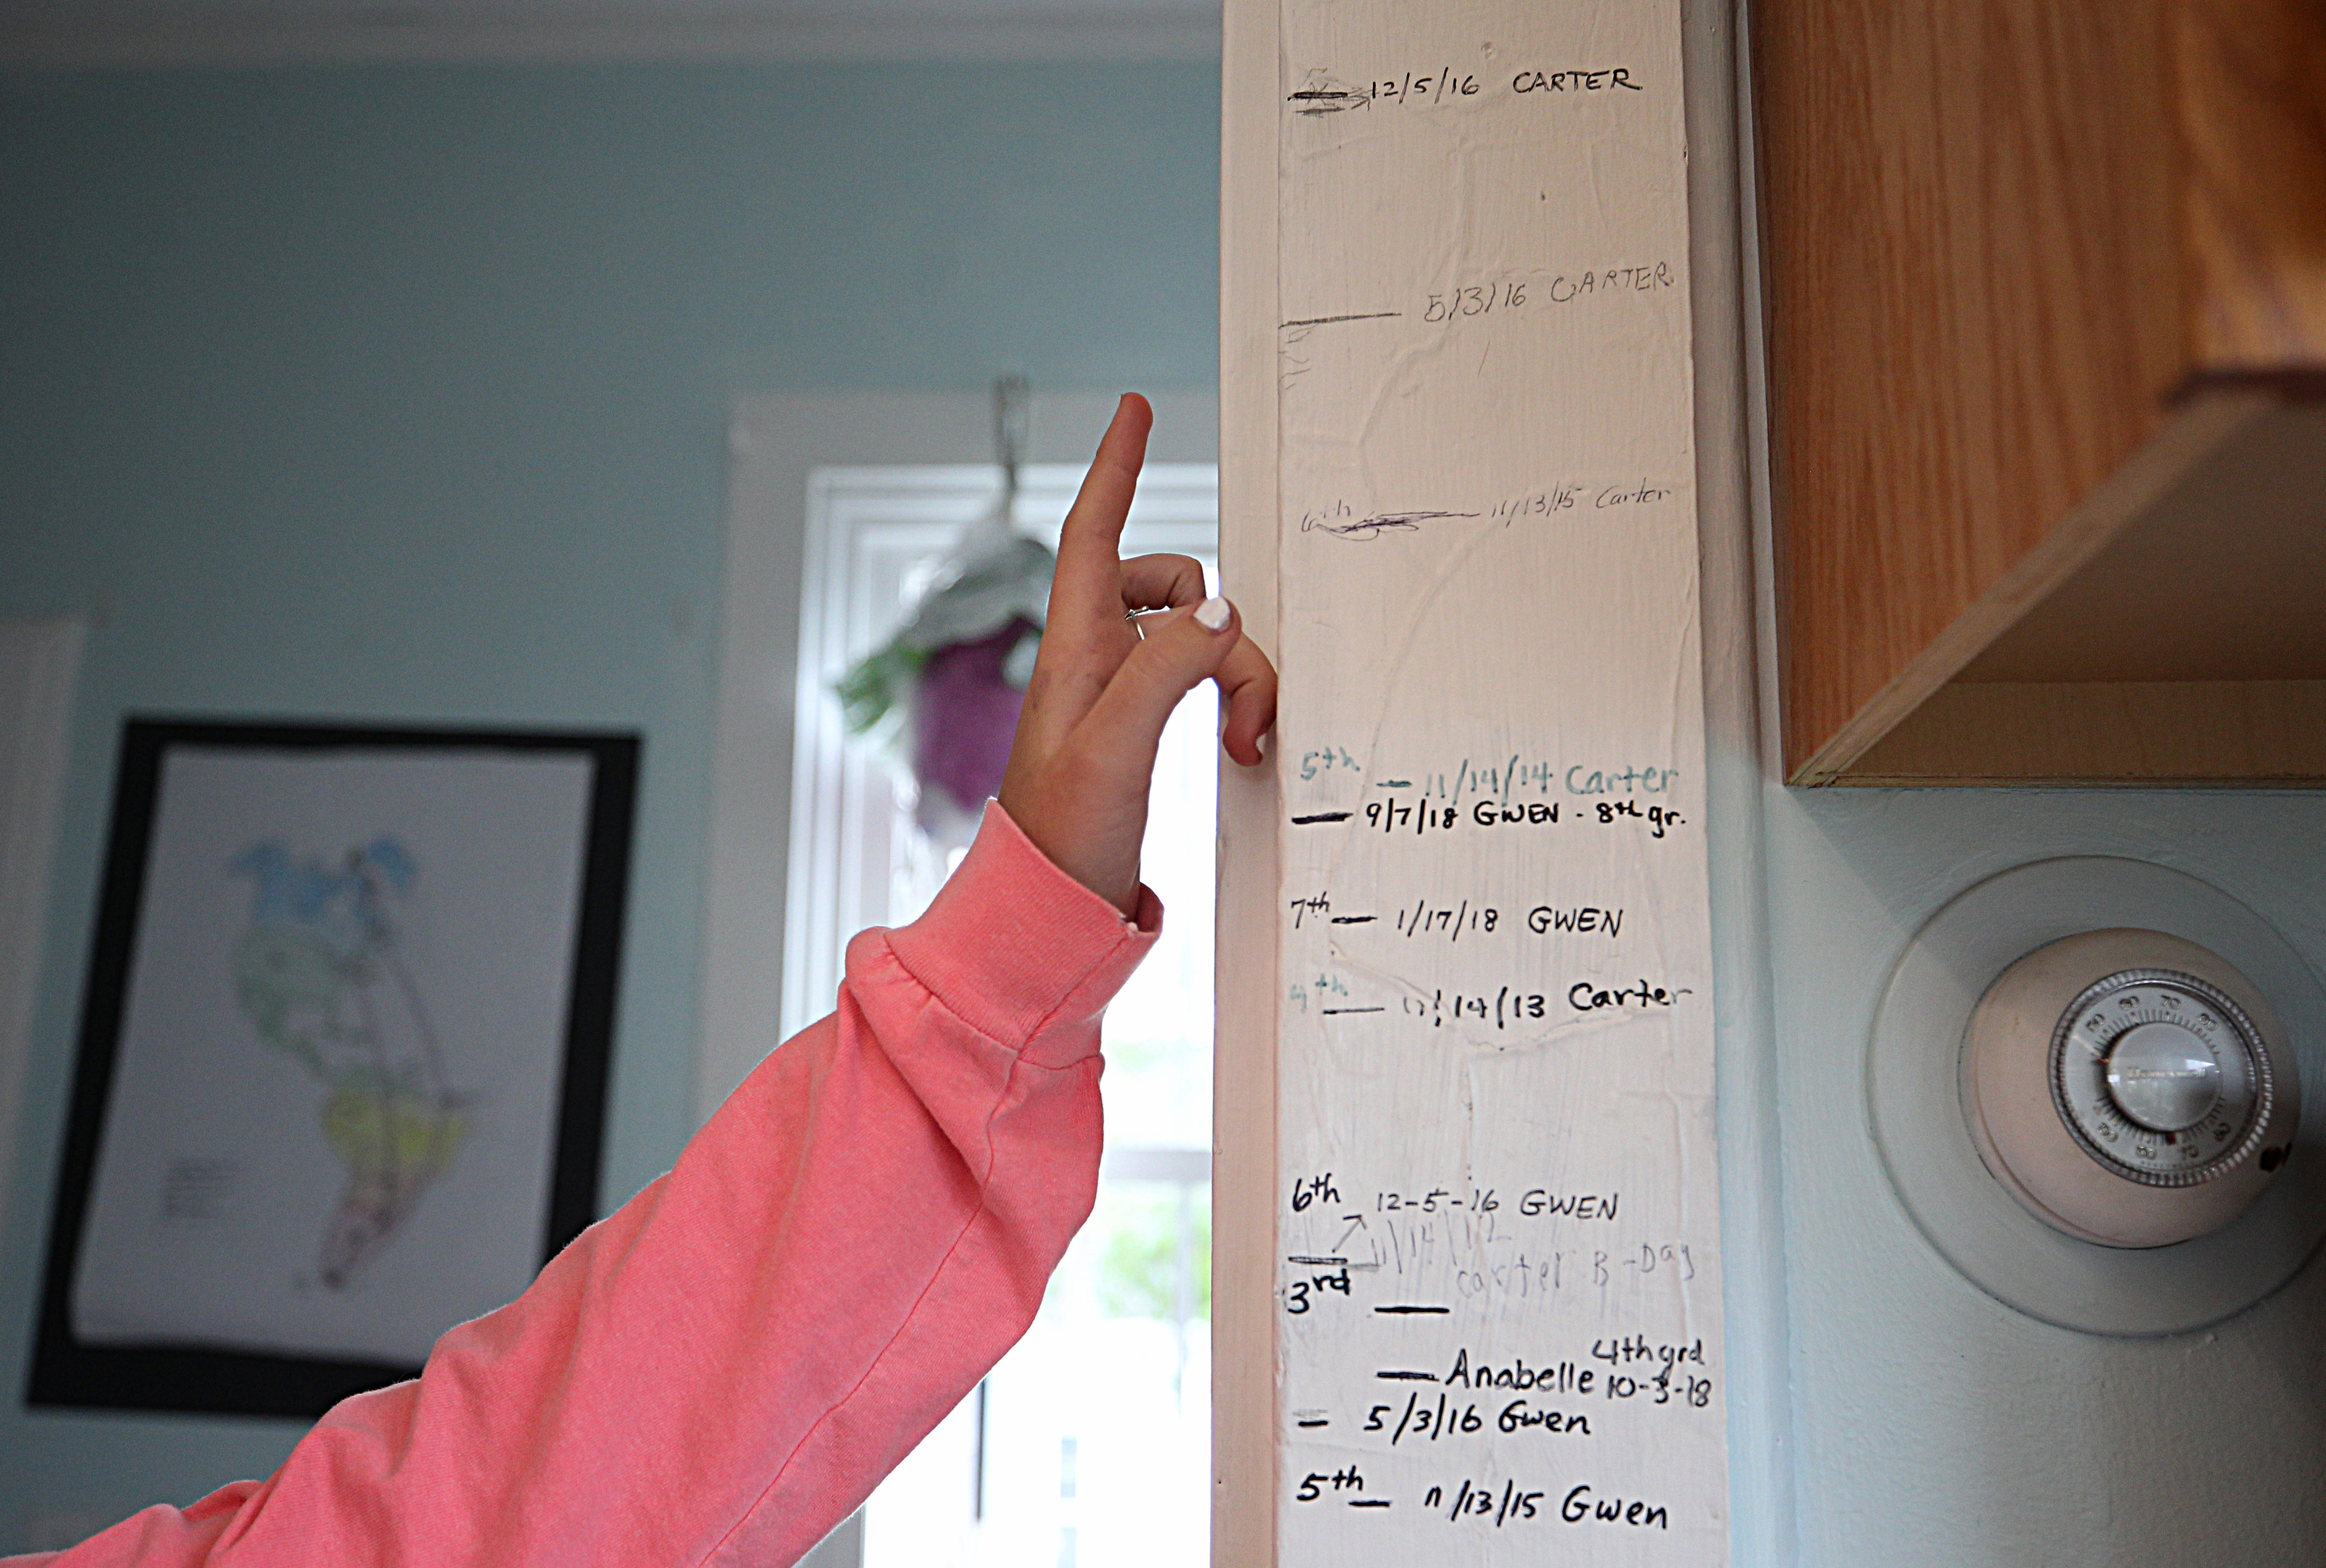 12/5/16 CARTER
5/3/16 CARTER
6th 11/13/15 Carter
5th 11/14/14 Carter
9/7/18 GWEN - 8th gr.
7th 1/17/18 GWEN
4th 11/14/13 Carter
6th 12-5-16 GWEN
11/14/12
carter B-Day
3rd
4th grd
Anabelle 10-3-18
5/3/16 Gwen
5th 11/13/15 Gwen